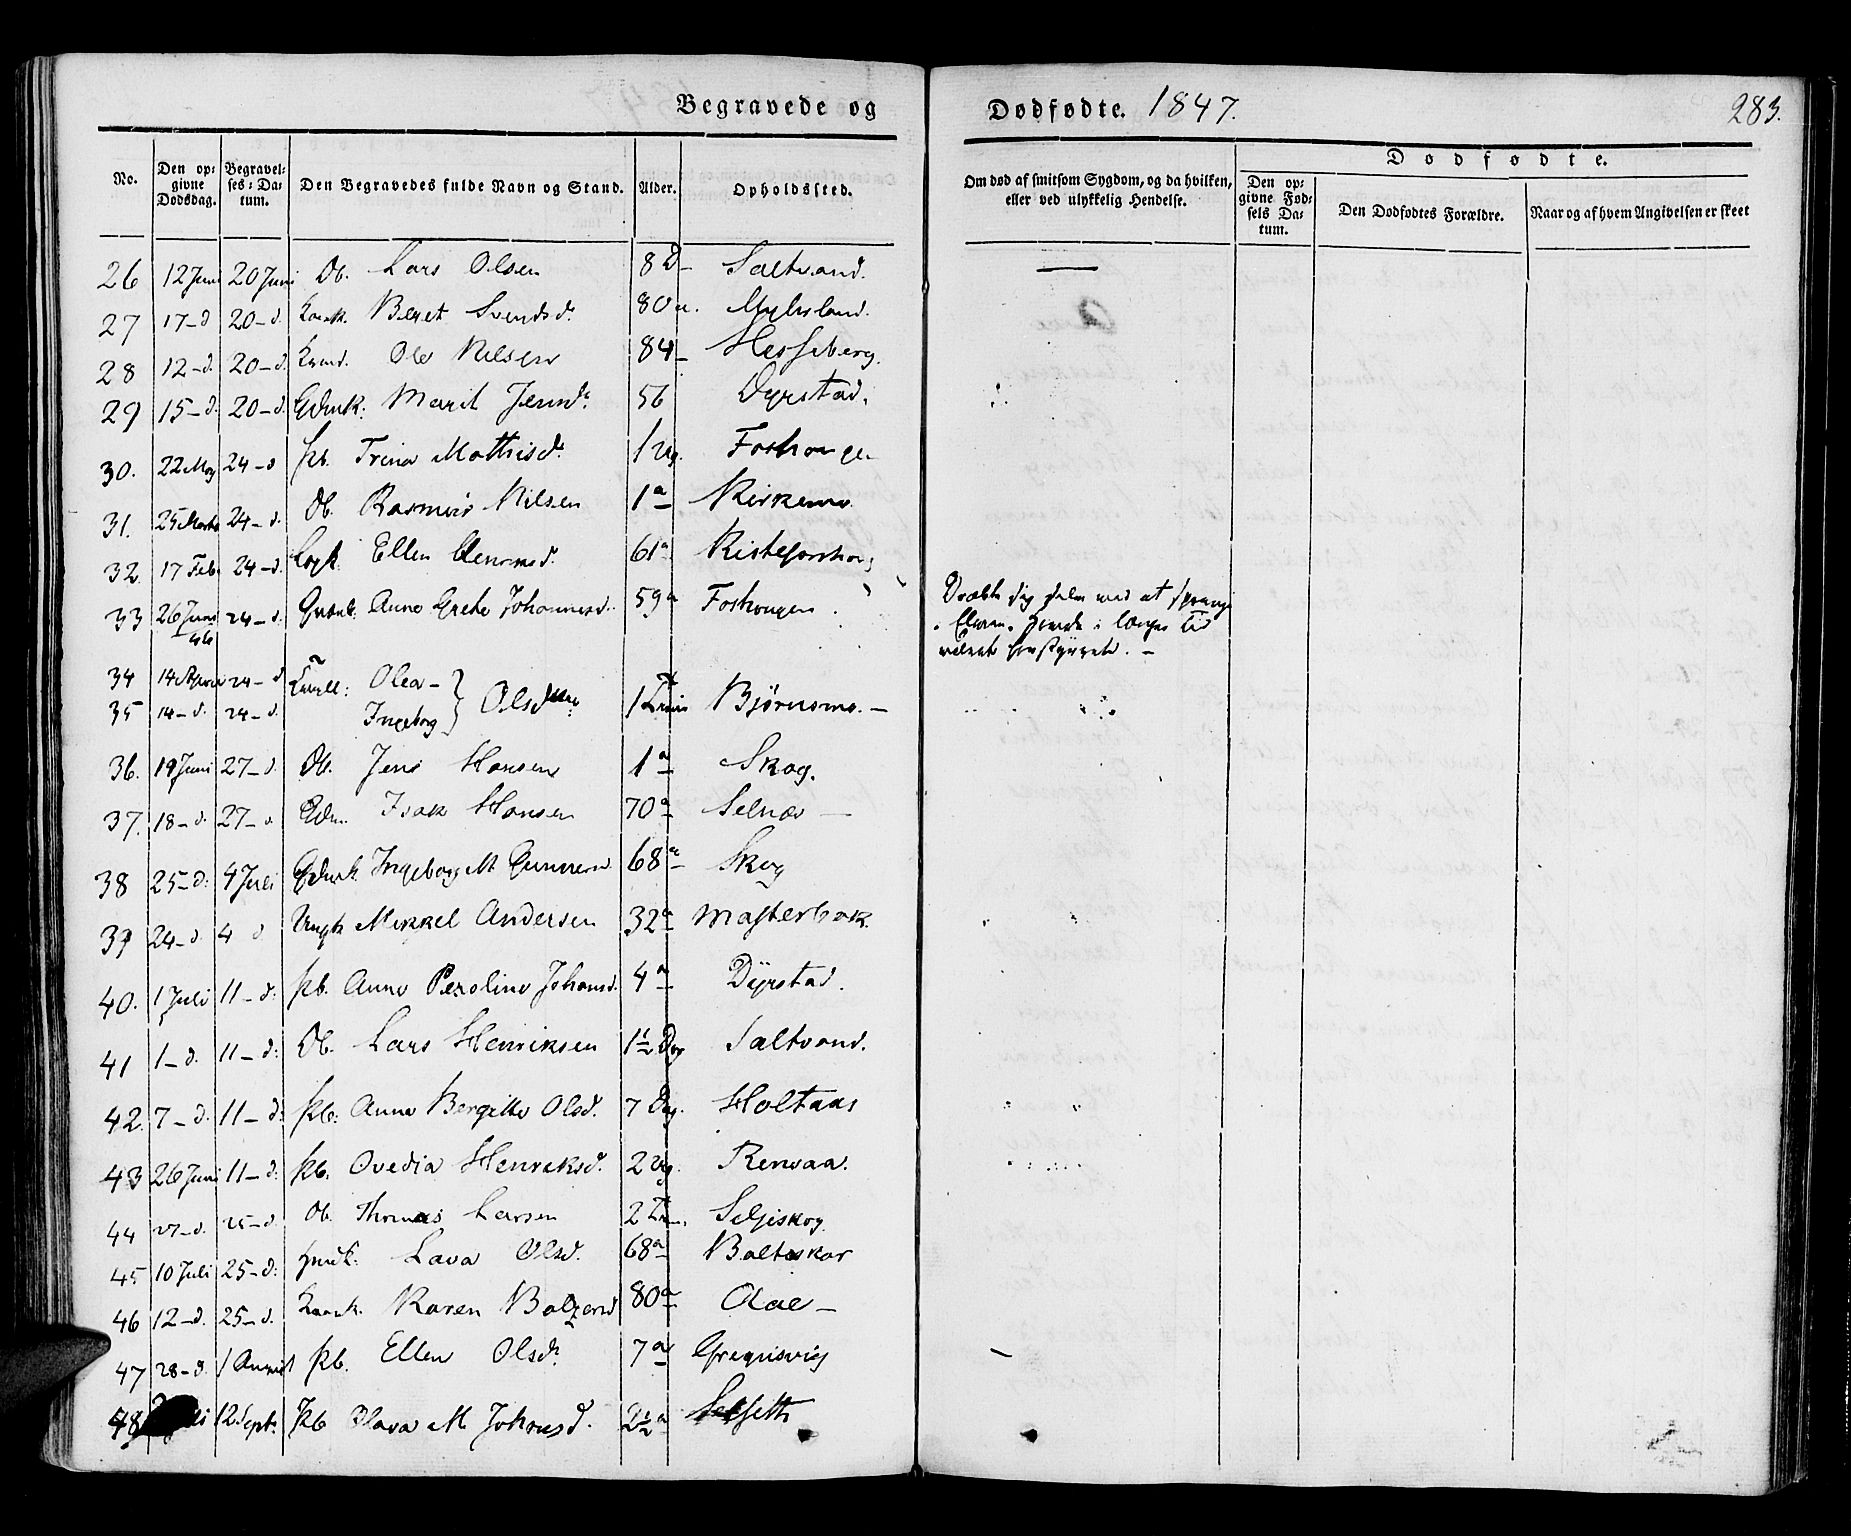 Begravede og Dødfødte. 1847. 283.
No. Den opgivne Dødsdag. Begravelses-Datum. Den Begravedes fulde Navn og Stand. Alder. Opholdssted. Om død af smitsom Sygdom, og da hvilken, eller ved ulykkelig Hendelse. Dødfødte. Den opgivne Fødsels Datum. Den Dødfødtes Forældre. Naar og af hvem Angivelsen er skeet
26 12 Juni 20 Juni Db. Lars Olsen 8 D Saltvand.
27 17-d 20-d. Beret Svendsd. 80 a. Myhrland.
28 12-d. 20-d. Ole Nilsen 84 Hesseberg.
29 15-d. 20-d. Marit Jensd. 56 Dyrstad.
30. 22 May 24-d pb. Trina Mathisd. 1 Ug. Foshaugen
31. 25 Marts 24-d. Db. Rasmus Nilsen 1 a Kirkemo.
32. 17 Feb. 24-d. Ellen 61 a
33 26 Juni 46 24-d. Anne Grete Johannesd. 59 a Foshougen. Dræbte sig selv ved at springe
i Elven. Havde i længre Tid
været forstyrret. -
34 14 24-d Olea -
35 14-d. 24-d. Ingeborg Olsd 1 Bjørnsmo. -
36. 19 Juni 27-d. Db. Jens Hansen 1 a Skog.
37. 18-d. 27-d Isak Hansen 70 a Selnæs
38 25-d. 4 Juli Ingeborg M. Gunnersd 68 a Skog
39 24-d. 4 d Ungk Mikkel Andersen 32 a Masterbak.
40. 1 Juli 11-d. pb. Anne Peroline Johansd. 4 a Dÿrstad.
41 1-d. 11-d. Db. Lars Henriksen 1½ Dag Saltvand.
42. 7-d. 11-d. pb. Anne Bergitte Olsd. 7 Dag. Holtaas
43 26 Juni 11-d. pb. Ovedia Henriksd. 2 Ug. Rensaa.
44 27-d. 25-d. Db. Thomas Larsen 2 Seljeskog
45 10 Juli 25-d. Lava Olsd. 68 a Balteskar
46 12-d. 25-d. Karen 80 a Aae -
47 28-d. 1 August pb. Ellen Olsd. 7 a Gregusvig
48 12 Sept. pb Olava M. Johansd. 2½ a